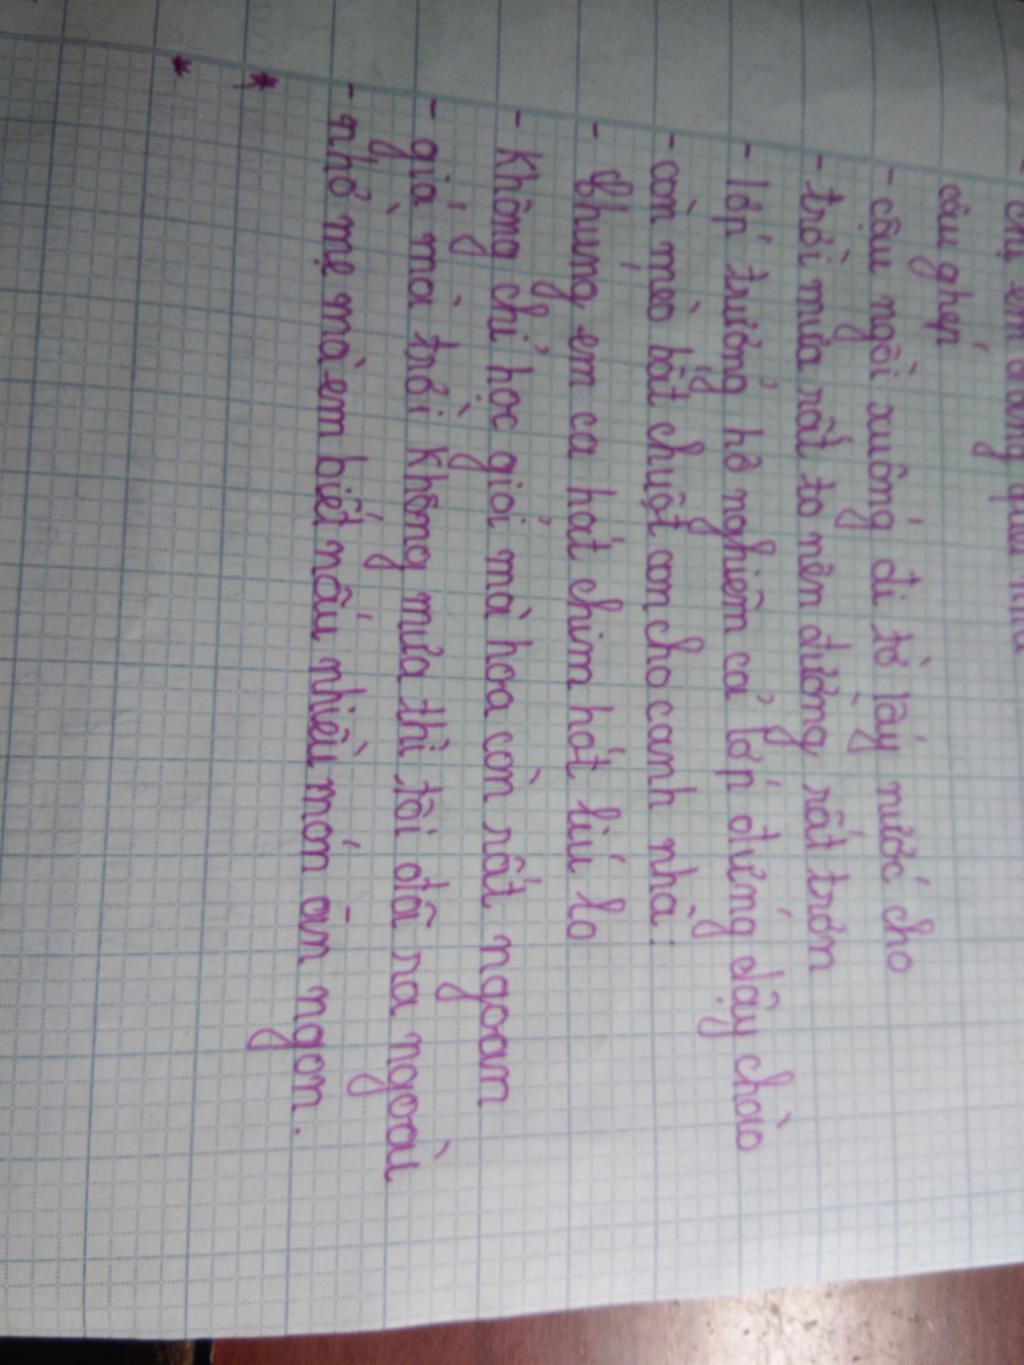 - chị em đang
câu ghép
- cậu ngồi xuống đi tớ lấy nước cho
- trời mưa rất to nên đường rất trơn
- lớp trưởng hô nghiêm cả lớp đứng dậy chào
- còn mèo bắt chuột con cho canh nhà.
- Chúng em ca hát chim hót líu lo
- không chỉ học giỏi mà hoa còn rất ngoan
- giá mà trời không mưa thì tôi đã ra ngoài
- nhờ mẹ mà em biết nấu nhiều món ăn ngon.
*
*